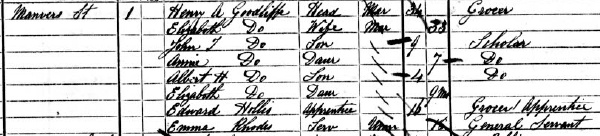 Manvers St 1 Henry A Goodliffe Head Mar 34 Grocer
Elizabeth Do Wife Mar 38
John T Do Son 9 Scholar
Annie Do Daur 7 Do
Albert H Do Son 4 Do
Elizabeth Do Daur 9 Mo
Edward Hollis Apprentice 16 Grocer Apprentice
Emma Rhodes Serv Unm General Servant